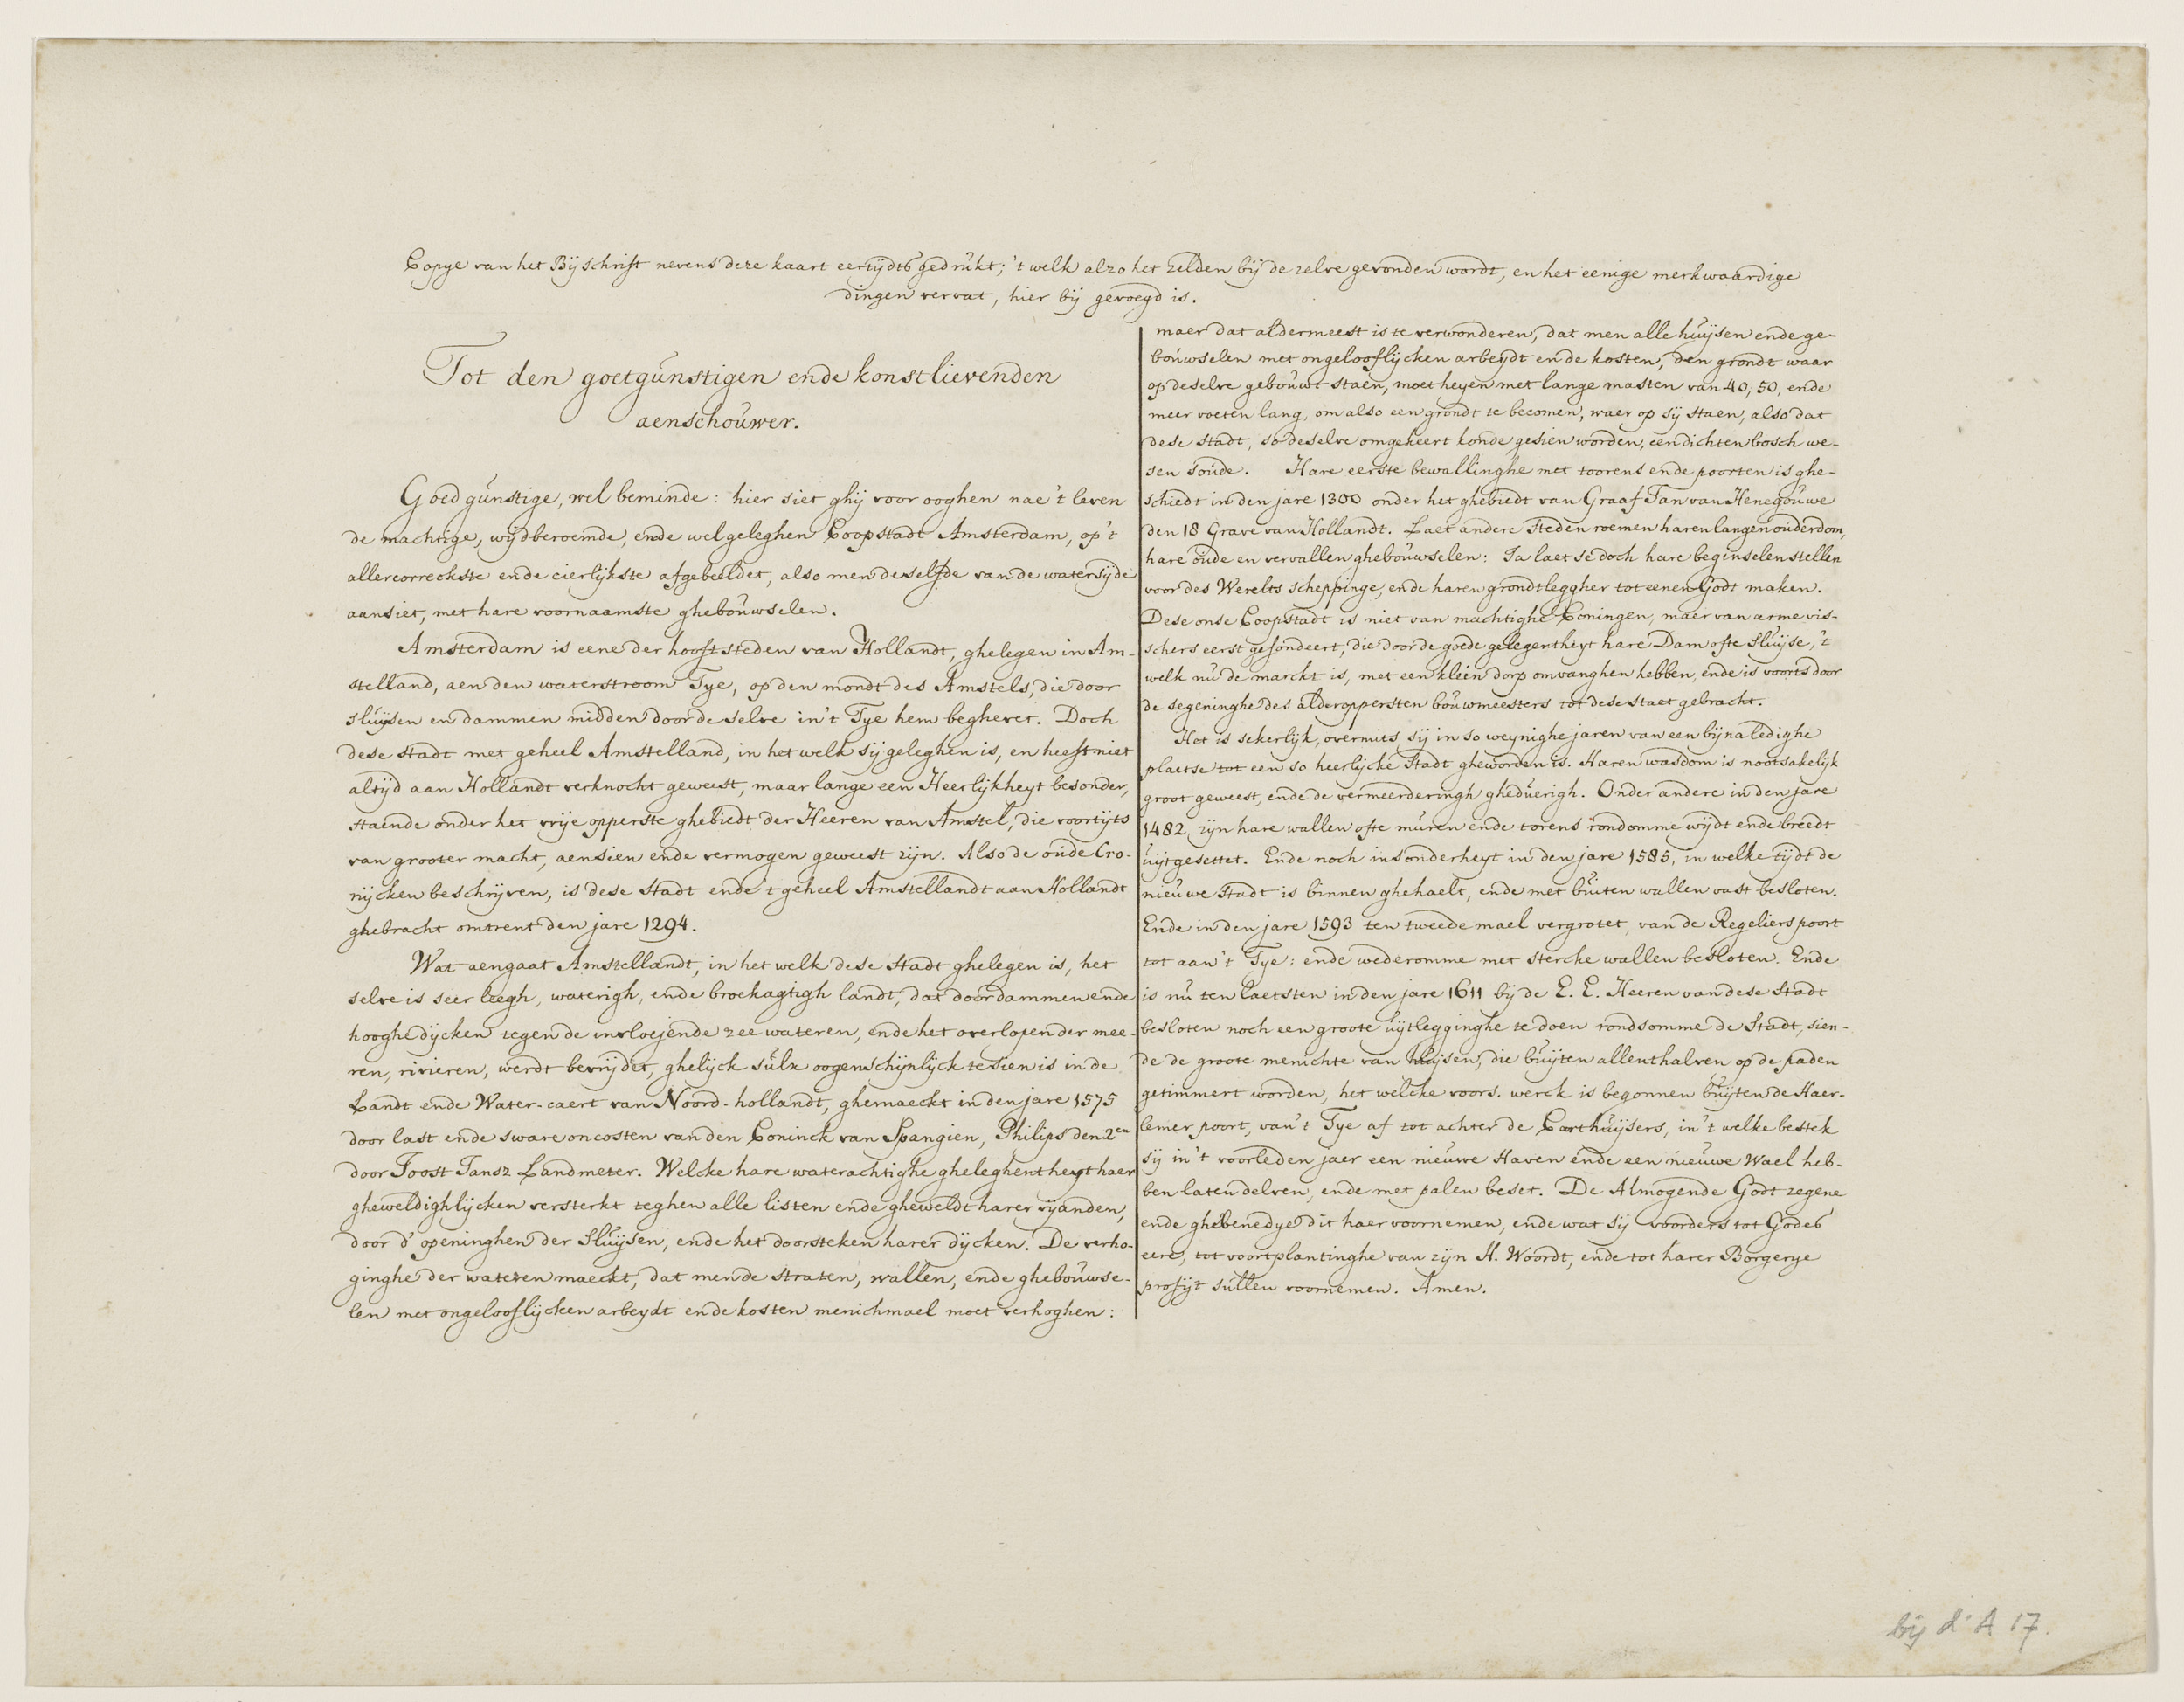 Copye van het Bijschrift nevens deze kaart eertijdts gedrukt; 't welk alzo het zelden bij de zelve gevonden wordt, en het eenige merkwaardige
dingen vervat, hier bij gevoegd is.
Tot den goetgunstigen ende konstlievenden
aenschouwer.
Goedgunstige, wel beminde: hier siet ghij voor ooghen nae 't leven
de machtige, wijdberoemde, ende wel geleghen Coopstadt Amsterdam, op 't
allercorreckste ende cierlijkste afgebeeldet, also men deselfde van de watersijde
aansiet, met hare voornaamste ghebouwselen.
Amsterdam is eene der hooftsteden van Hollandt, ghelegen in Am-
stelland, aen den waterstroom Tye, op den mondt des Amstels, die door
sluijsen en dammen midden door de selve in 't Tye hem begheret. Doch
dese stadt met geheel Amstelland, in het welk sij geleghen is, en heeft niet
altijd aan Hollandt verknocht geweest, maar lange een Heerlijkheyt besonder,
staende onder het vrije opperste ghebiedt der Heeren van Amstel, die voortijts
van grooter macht, aensien ende vermogen geweest zijn. Also de oude Cro-
nijcken beschrijven, is dese Stadt ende 't geheel Amstellandt aan Hollandt
ghebracht omtrent den jare 1294.
Wat aengaat Amstellandt, in het welk dese Stadt ghelegen is, het
selve is seer leegh, waterigh, ende broekagtigh landt, dat door dammen ende
hooghe dijcken tegen de invloejende zee wateren, ende het overlopen der mee-
ren, rivieren, werdt bevrijdet, ghelijck sulx oogenschijnlijck te sien is in de
Landt ende Water-caert van Noord-hollandt, ghemaeckt in den jare 1575
door last ende sware oncosten van den Coninck van Spangien, Philips den 2en
door Joost Jansz Landmeter. Welcke hare waterachtighe gheleghentheyt haer
gheweldighlijcken versterkt teghen alle listen ende gheweldt harer vijanden,
door d' openinghen der Sluijsen, ende het doorsteken harer dijcken. De verho-
ginghe der wateren maeckt, dat men de straten, wallen, ende ghebouwse-
len met ongelooflijcken arbeydt ende kosten menichmael moet verhoghen:
maer dat aldermeest is te verwonderen, dat men alle huijsen ende ge-
bouwselen met ongelooflijcken arbeydt ende kosten, den grondt waar
op deselve gebouwt staen, moet heyen met lange masten van 40, 50, ende
meer voeten lang, om also een grondt te becomen, waer op sij staen, also dat
dese stadt, so deselve omgekeert konde gesien worden, een dichten bosch we-
sen soude. Hare eerste bewallinghe met toorens ende poorten is ghe-
schiedt in den jare 1300 onder het ghebiedt van Graaf Jan van Henegouwe
den 18 Grave van Hollandt. Laet andere Steden roemen haren langen ouderdom,
hare oude en vervallen ghebouwselen: Ja laet se doch hare beginselen stellen
voor des Werelts scheppinge, ende haren grondtleggher tot eenen Godt maken.
Dese onse Coopstadt is niet van machtighe Coningen, maer van arme vis-
schers eerst gefondeert, die door de goede gelegentheyt hare Dam ofte Sluijse, 't
welk nu de marckt is, met een kleen dorp omvanghen hebben, ende is voorts door
de segeninghe des alderoppersten bouwmeesters tot dese staet gebracht.
Het is sekerlijk, overmits sij in so weynighe jaren van een bijna ledighe
plaetse tot een so heerlijcke Stadt gheworden is. Haren wasdom is nootsakelijk
groot geweest, ende de vermeerderingh gheduerigh. Onder andere in den jare
1482, zijn hare wallen ofte muren ende torens rondomme wijdt ende breedt
uijtgesettet. Ende noch insonderheyt in den jare 1585, in welke tijdt de
nieuwe Stadt is binnen ghehaelt, ende met buiten wallen vast besloten.
Ende in den jare 1593 ten tweede mael vergrotet, van de Regelierspoort
tot aan 't Tye: ende wederomme met stercke wallen besloten. Ende
is nu ten laetsten in den jare 1611 bij de E. E. Heeren van dese Stadt
besloten noch een groote uijtlegginghe te doen rondsomme de Stadt, sien-
de de groote menichte van huijsen, die buijten allenthalven op de paden
getimmert worden, het welcke voors. werck is begonnen buijten de Haer-
lemer poort, van 't Tye af tot achter de Carthuijsers, in 't welke bestek
sij in 't voorleden jaer een nieuwe Haven ende een nieuwe Wael heb-
ben laten delven, ende met palen beset. De Almogende Godt zegene
ende ghebenedye dit haer voornemen, ende wat sij voorders tot Godes
eere, tot voortplantinghe van zijn H. Woordt, ende tot harer Borgerye
profijt sullen voornemen. Amen.
bij d' A 17.